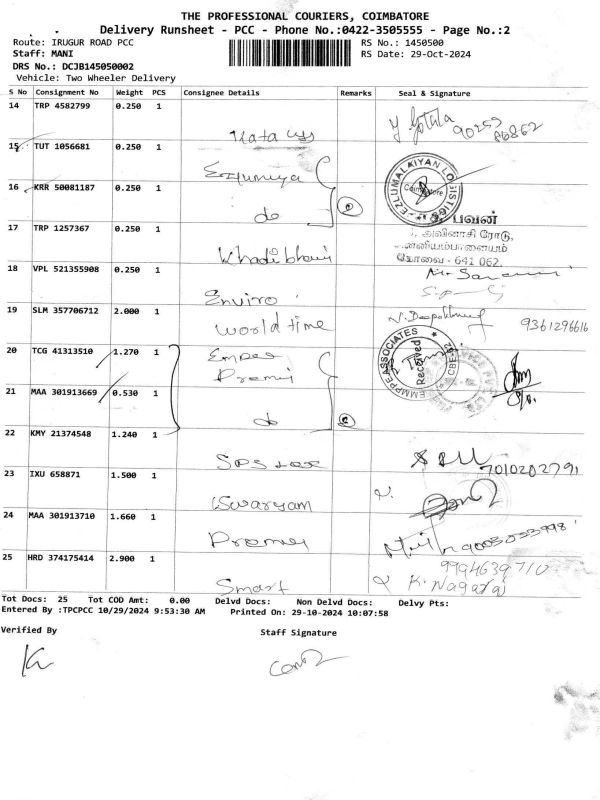 THE PROFESSIONAL COURIERS, COIMBATORE
Delivery Runsheet - PCC - Phone No.:0422-3505555 - Page No.:2
Route: IRUGUR ROAD PCC RS No.: 1450500
Staff: MANI RS Date: 29-Oct-2024
DRS No.: DCJB145050002
Vehicle: Two Wheeler Delivery
S No Consignment No Weight PCS Consignee Details Remarks Seal & Signature
14 TRP 4582799 0.250 1
15 TUT 1056681 0.250 1
16 KRR 50081187 0.250 1 do
EZLUMALAIYAN LOGISTICS
Coimbatore
17 TRP 1257367 0.250 1
பவன்
அவினாசி ரோடு,
கோவை - 641 062.
18 VPL 521355908 0.250 1 Enviro
19 SLM 357706712 2.000 1 world time 9361296616
20 TCG 41313510 1.270 1
EMMPE ASSOCIATES
Received
CBE-62
21 MAA 301913669 0.530 1 do
22 KMY 21374548 1.240 1 7010202791
23 IXU 658871 1.500 1 iswaryam
24 MAA 301913710 1.660 1
25 HRD 374175414 2.900 1 Smart 9994639710
K. Nagaraj
Tot Docs: 25 Tot COD Amt: 0.00 Delvd Docs: Non Delvd Docs: Delvy Pts:
Entered By :TPCPCC 10/29/2024 9:53:30 AM Printed On: 29-10-2024 10:07:58
Verified By Staff Signature